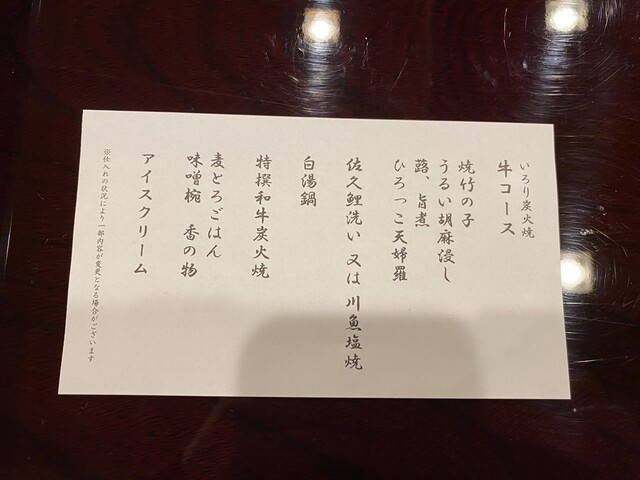 いろり炭火焼
牛コース
焼竹の子
うるい胡麻浸し
蕗、旨煮
ひろっこ天婦羅
佐久鯉洗い 又は 川魚塩焼
白湯鍋
特撰和牛炭火焼
麦とろごはん
味噌椀 香の物
アイスクリーム
※仕入れの状況により一部内容が変更となる場合がございます